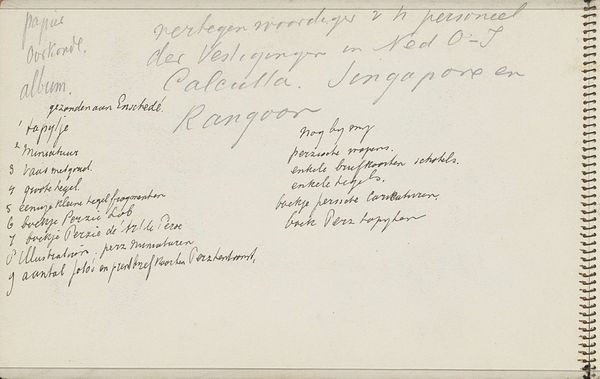 papier
Oorkonde.
album.
vertegenwoordiger v h personeel
der Vestigingen in Ned O-I
Calcutta. Singapore en
Rangoon
gezonden aan Enschedé.
1 tapijtje
2 Miniatuur
3 Vaas met goud.
4 groote tegel.
5 eenige kleine tegel fragmenten
6 boekje Perzië Lob
7 boekje Perzië de Art de Perse
8 Illustration, perz Miniaturen
9 aantal foto's en prentbriefkaarten Perz tentoonst.
nog by my
perzische wapens.
enkele briefkaarten schotels.
enkele tegels.
boekje perzische Carikaturen.
boek Perz tapyten